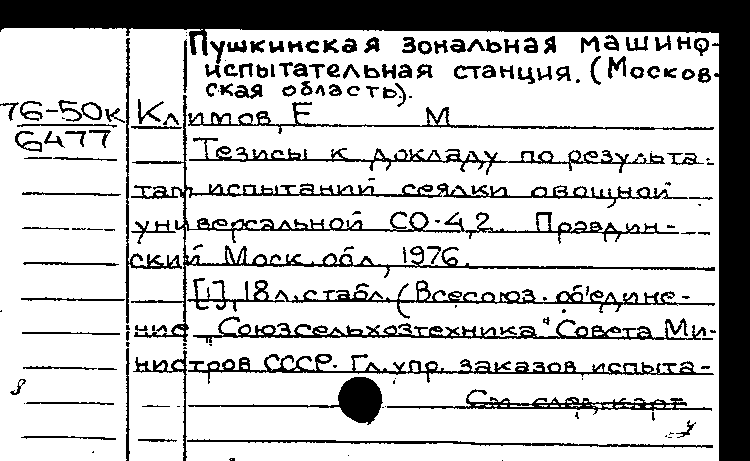 Пушкинская зональная машино-
испытательная станция. (Москов-
ская область).
76-50к Климов, Е М
6477
Тезисы к докладу по результа-
там испытаний сеялки овощной
универсальной СО-4,2. Правдин-
ский Моск. обл., 1976.
[1], 18 л. с табл. (Всесоюз. об'едине-
ние "Союзсельхозтехника" Совета Ми-
нистров СССР. Гл. упр. заказов, испыта-
См. след. карт